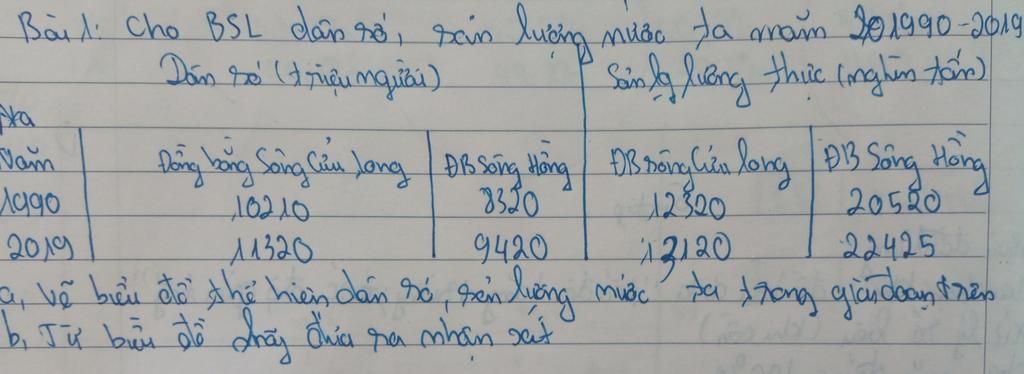 Bài 1: Cho BSL dân số, sản lượng nước ta năm 1990-2019
Dân số (triệu người) Sản lg lương thực (nghìn tấn)
Năm Đồng bằng Sông Cửu Long ĐB Sông Hồng ĐB sông Cửu Long ĐB Sông Hồng
1990 10210 8320 12320 20520
2019 11320 9420 13120 22425
a, Vẽ biểu đồ thể hiện dân số, sản lượng nước ta trong giai đoạn trên
b, Từ biểu đồ hãy đưa ra nhận xét